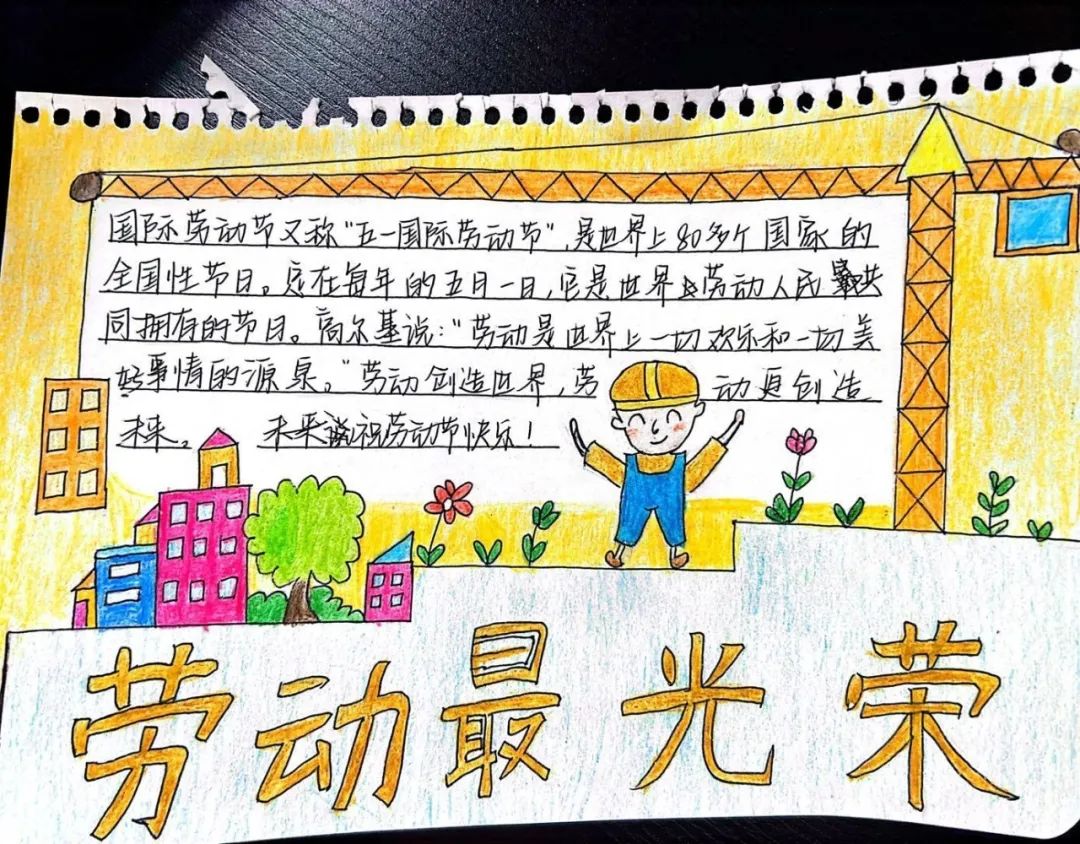 国际劳动节又称“五一国际劳动节”，是世界上80多个国家的
全国性节日。定在每年的五月一日，它是世界上劳动人民共
同拥有的节日。高尔基说：“劳动是世界上一切欢乐和一切美
好事情的源泉。”劳动创造世界，劳动更创造
未来。 未来祝劳动节快乐！
劳动最光荣